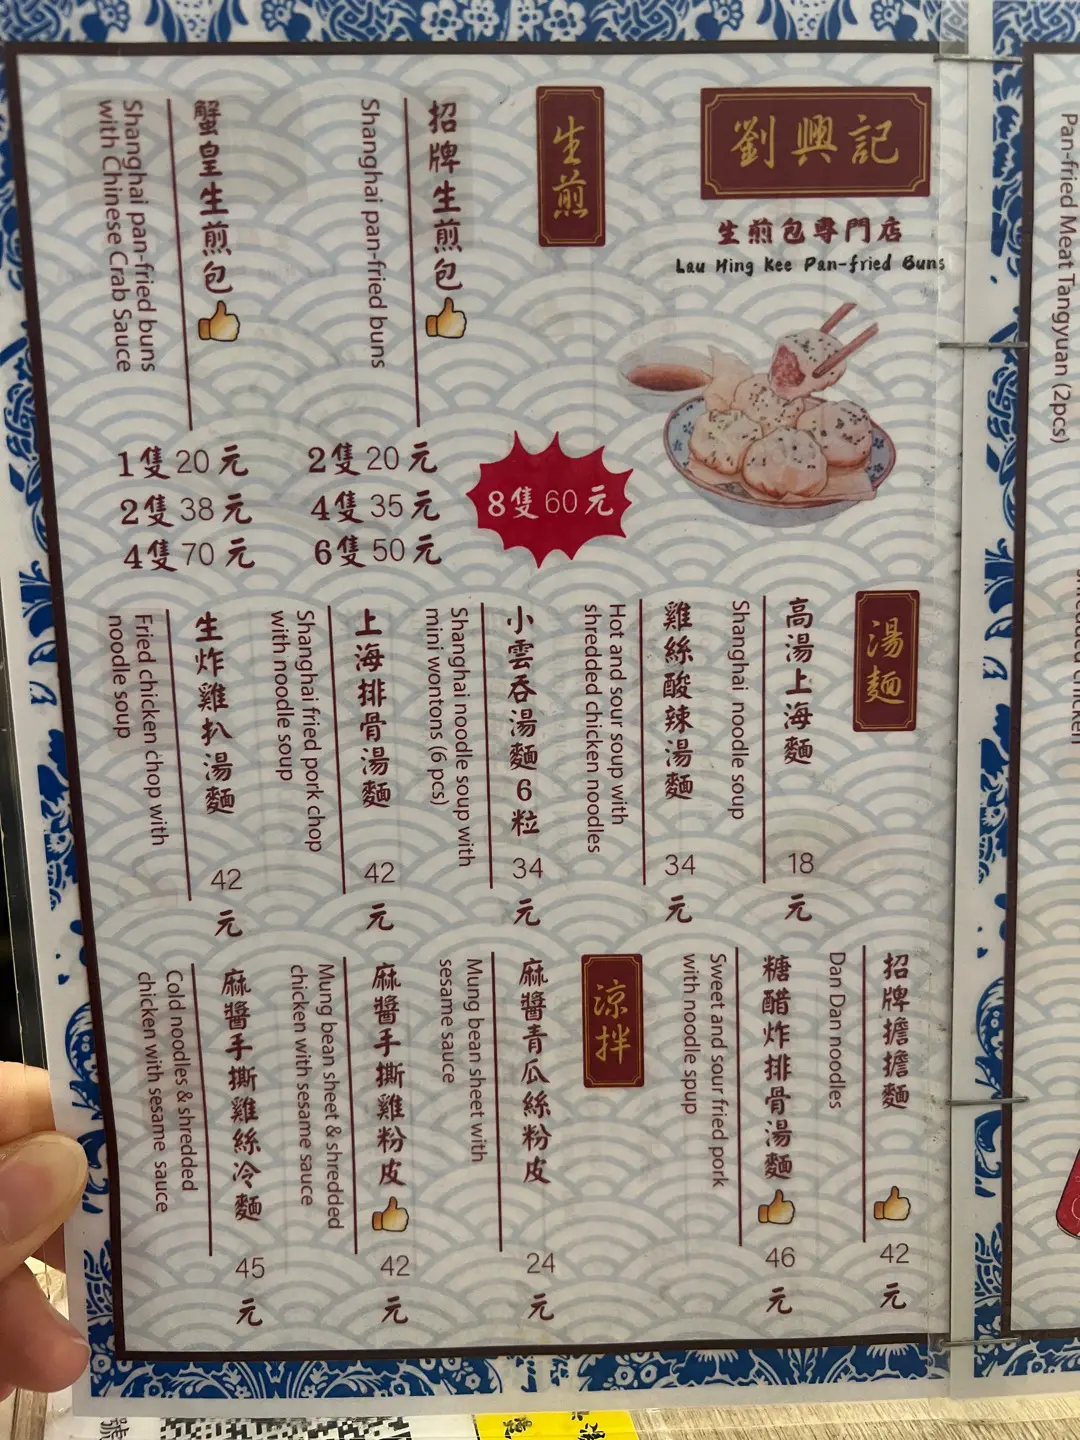 劉興記
生煎包專門店
Lau Hing Kee Pan-fried Buns
生煎
招牌生煎包
Shanghai pan-fried buns
2隻20元
4隻35元
6隻50元
8隻60元
蟹皇生煎包
Shanghai pan-fried buns
with Chinese Crab Sauce
1隻20元
2隻38元
4隻70元
湯麵
高湯上海麵
Shanghai noodle soup
18元
雞絲酸辣湯麵
Hot and sour soup with
shredded chicken noodles
34元
小雲吞湯麵6粒
Shanghai noodle soup with
mini wontons (6 pcs)
34元
上海排骨湯麵
Shanghai fried pork chop
with noodle soup
42元
生炸雞扒湯麵
Fried chicken chop with
noodle soup
42元
招牌擔擔麵
Dan Dan noodles
42元
糖醋炸排骨湯麵
Sweet and sour fried pork
with noodle spup
46元
涼拌
麻醬青瓜絲粉皮
Mung bean sheet with
sesame sauce
24元
麻醬手撕雞粉皮
Mung bean sheet & shredded
chicken with sesame sauce
42元
麻醬手撕雞絲冷麵
Cold noodles & shredded
chicken with sesame sauce
45元
Pan-fried Meat Tangyuan (2pcs)
shredded chicken
號